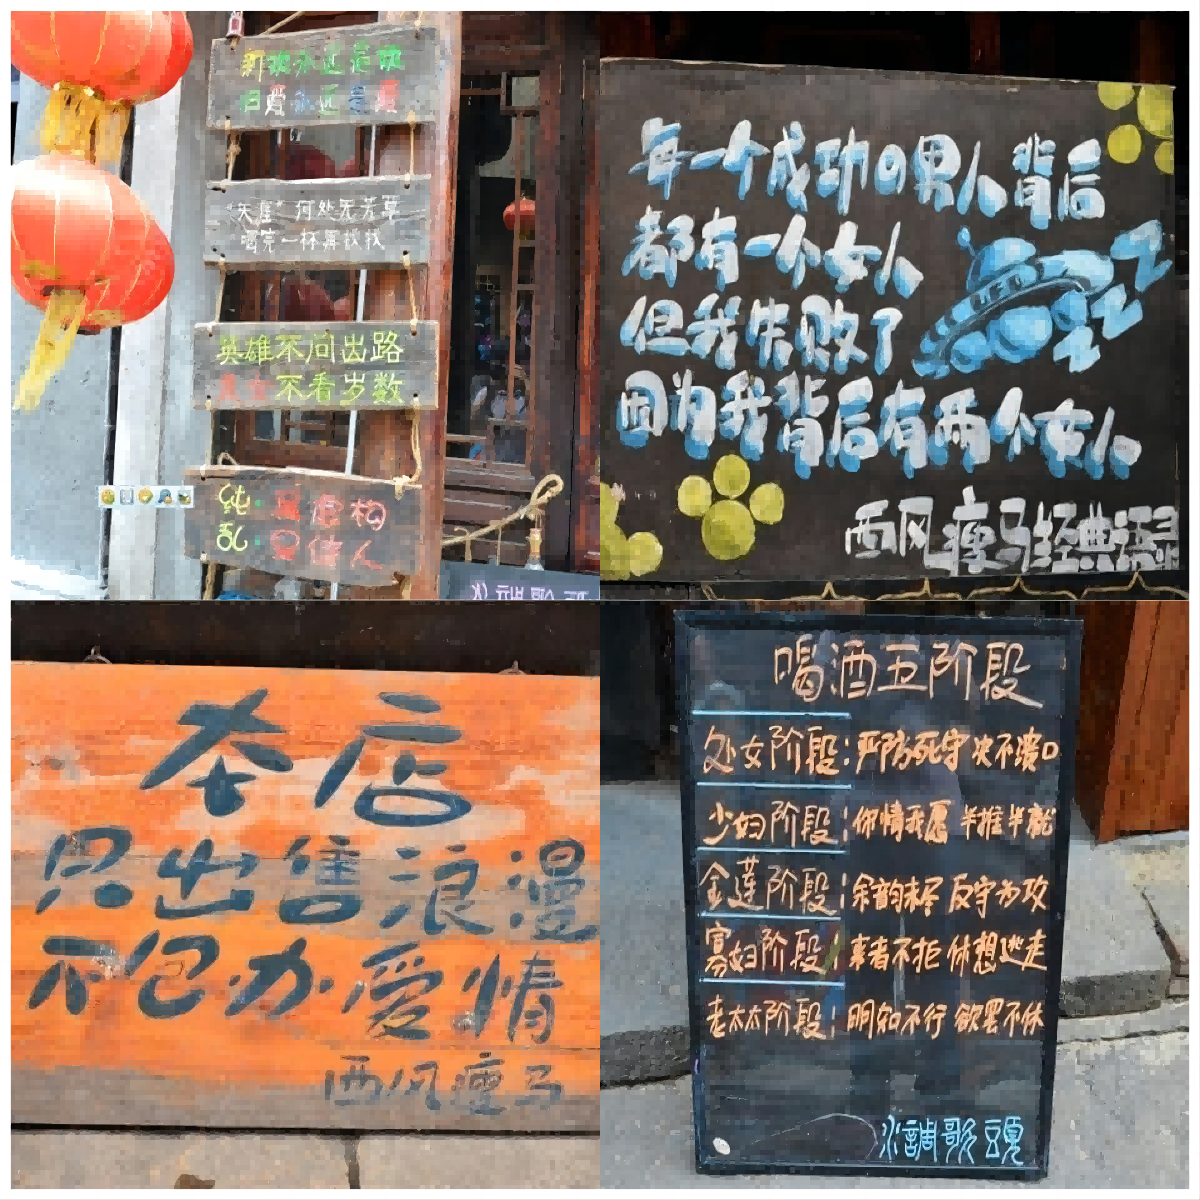 新欢永远是欢
旧爱永远是爱
"天涯"何处无芳草
喝完一杯再找找
英雄不问出路
美女不看岁数
纯:
乱:
人
每一个成功の男人背后
都有一个女人
但我失败了
因为我背后有两个女人
西风瘦马经典语录
本店
只出售浪漫
不包办爱情
西风瘦马
喝酒五阶段
处女阶段:严防死守 决不溃口
少妇阶段:你情我愿 半推半就
金莲阶段:余韵未尽 反守为攻
寡妇阶段:来者不拒 休想逃走
老太太阶段:明知不行 欲罢不休
水調歌頭